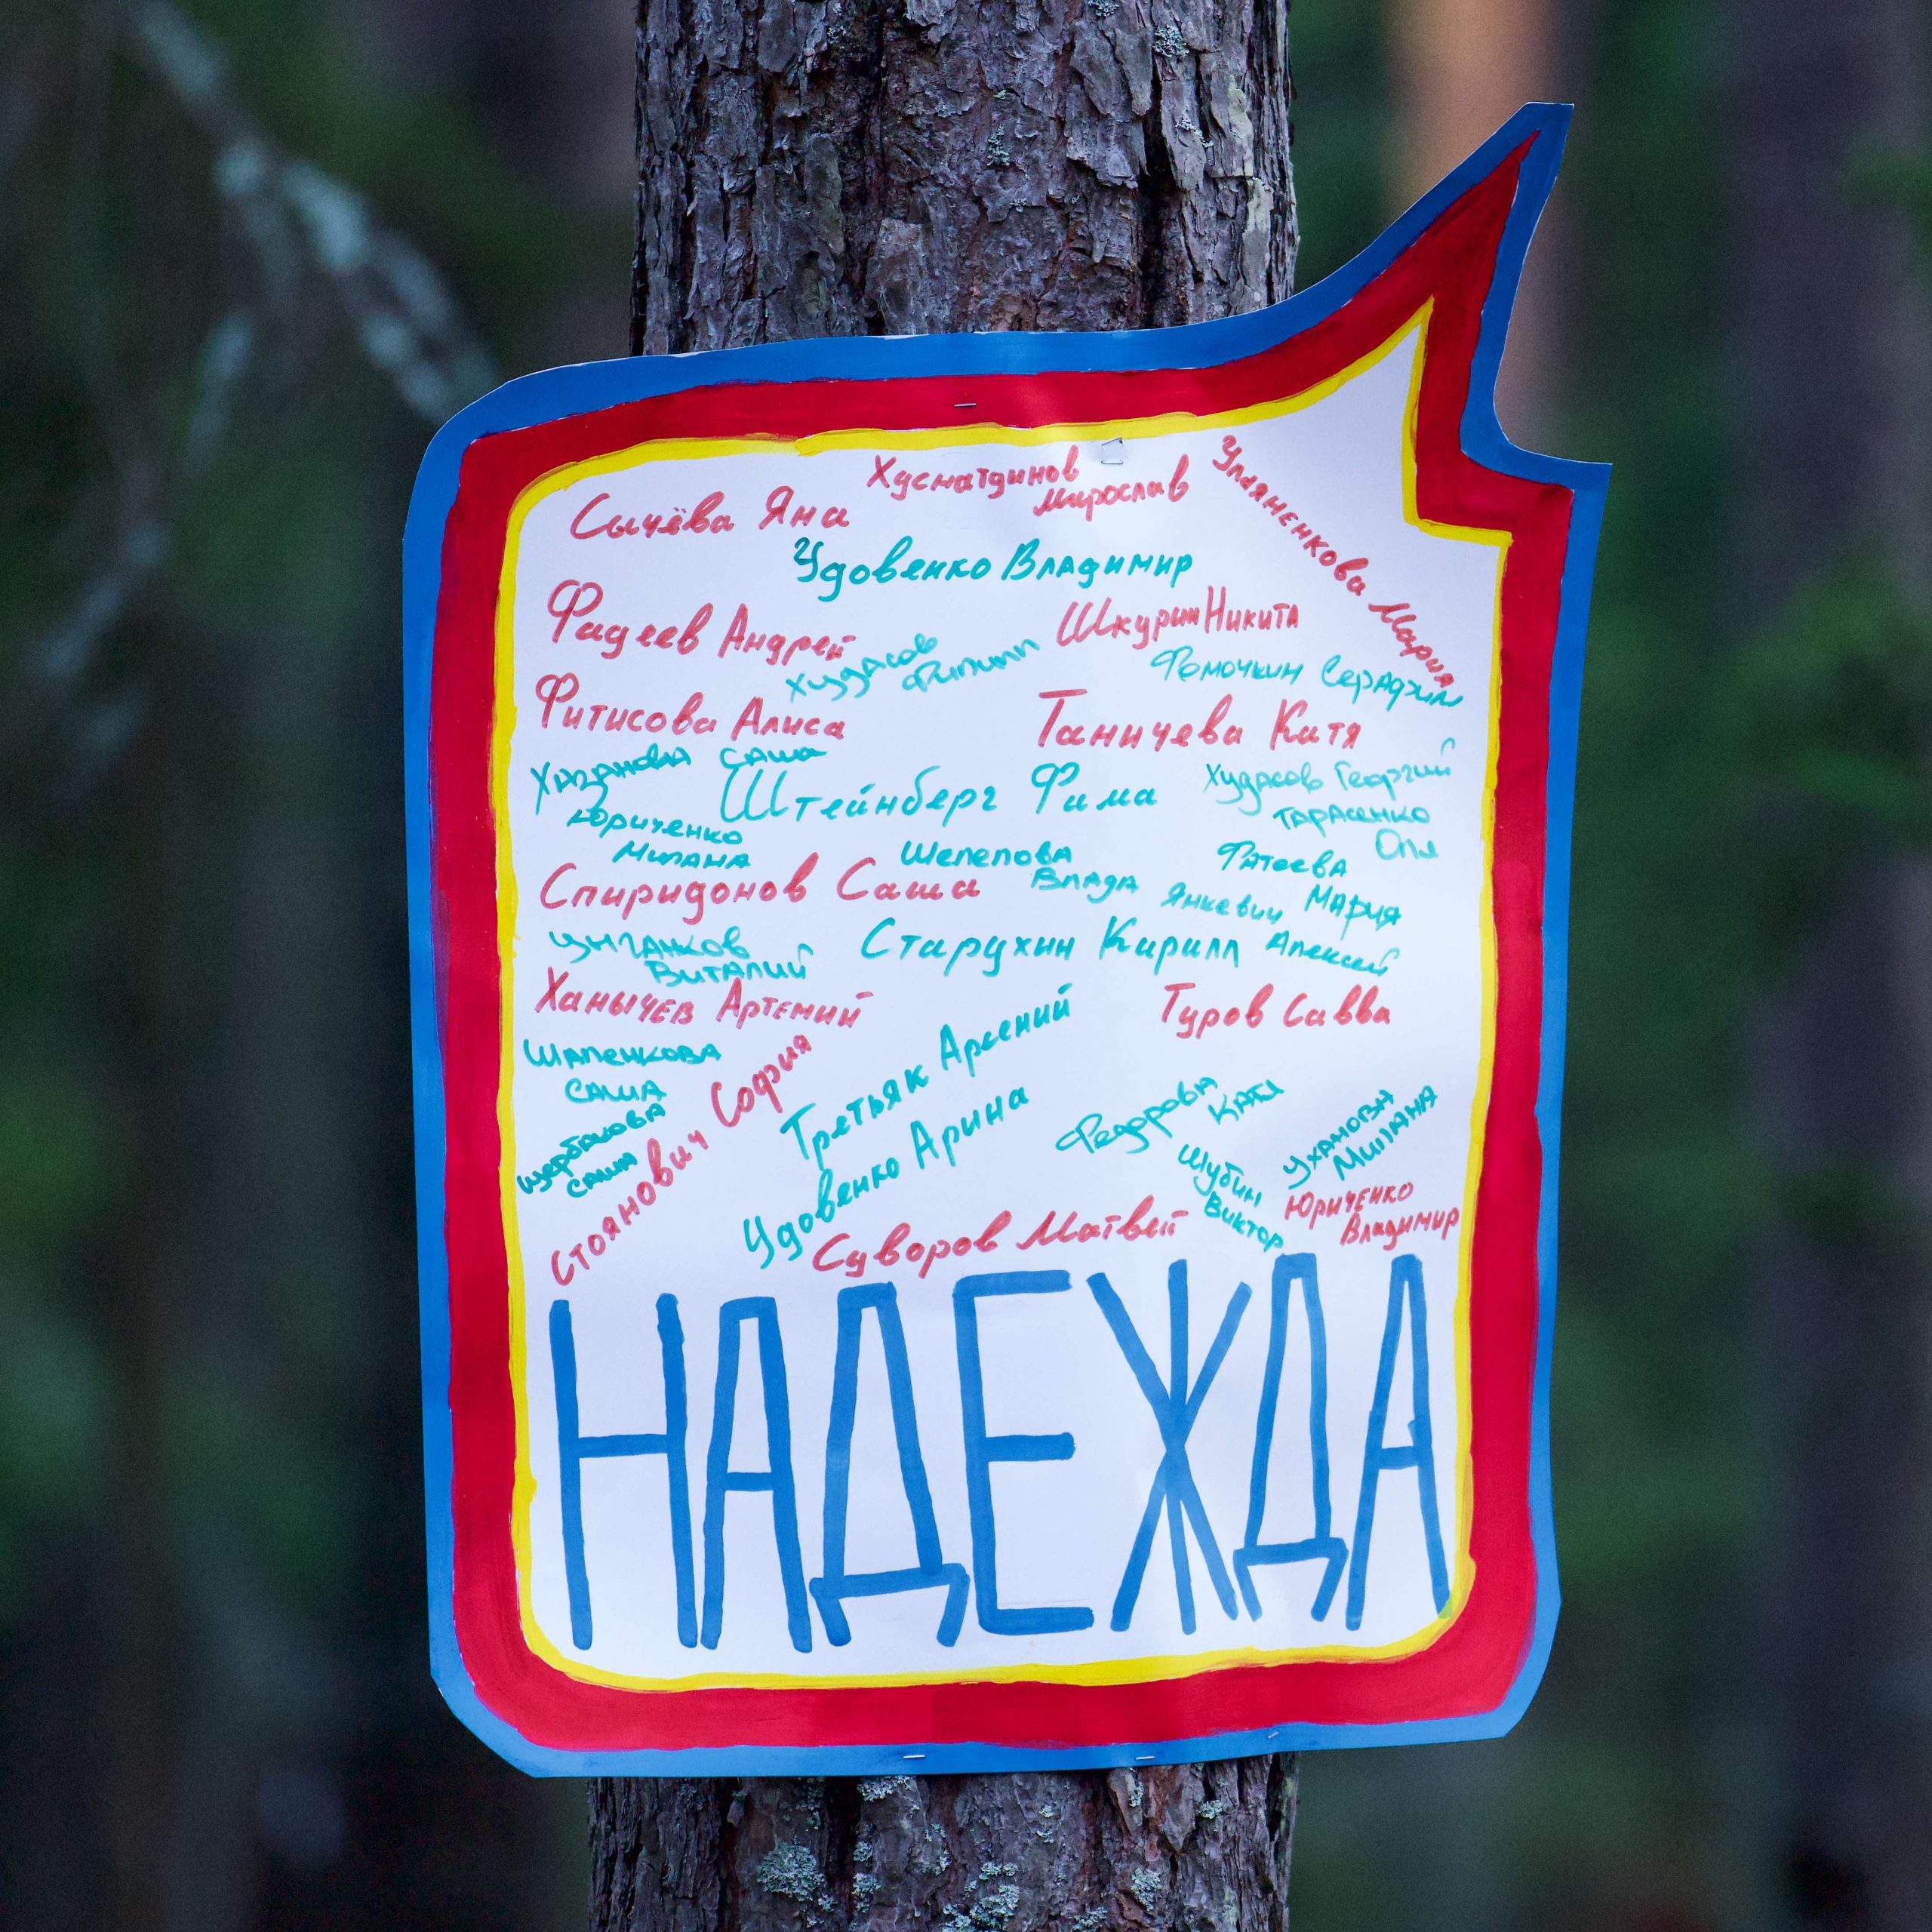 Хусматдинов
Мирослав
Сычёва Яна
Ульяненкова Мария
Удовенко Владимир
Фадеев Андрей
Шкурин Никита
Худасов
Филипп
Фомочкин Серафим
Фитисова Алиса
Таничева Катя
Хазанова Саша
Штейнберг Фима
Худасов Георгий
Юриченко
Милана
Тарасенко
Оля
Шелепова
Влада
Фатеева
Мария
Спиридонов Саша
Янкевич
Алексей
Цыганков
Виталий
Старухин Кирилл
Ханычев Артемий
Туров Савва
Шаленкова
Саша
Стоянович София
Третьяк Арсений
Щербакова
Саша
Удовенко Арина
Федорова
Катя
Уханова
Милана
Шубин
Виктор
Юриченко
Владимир
Суворов Матвей
НАДЕЖДА